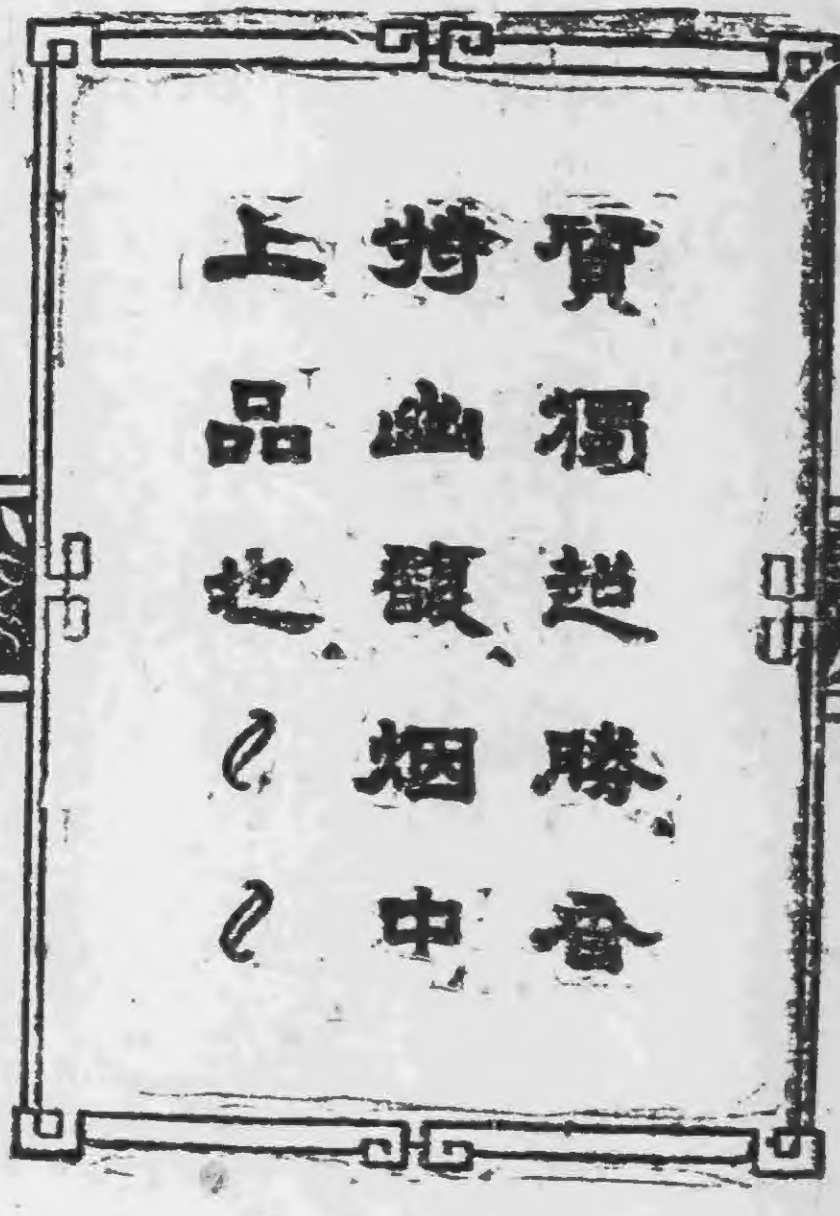 質獨超勝香
特幽馥烟中
上品也